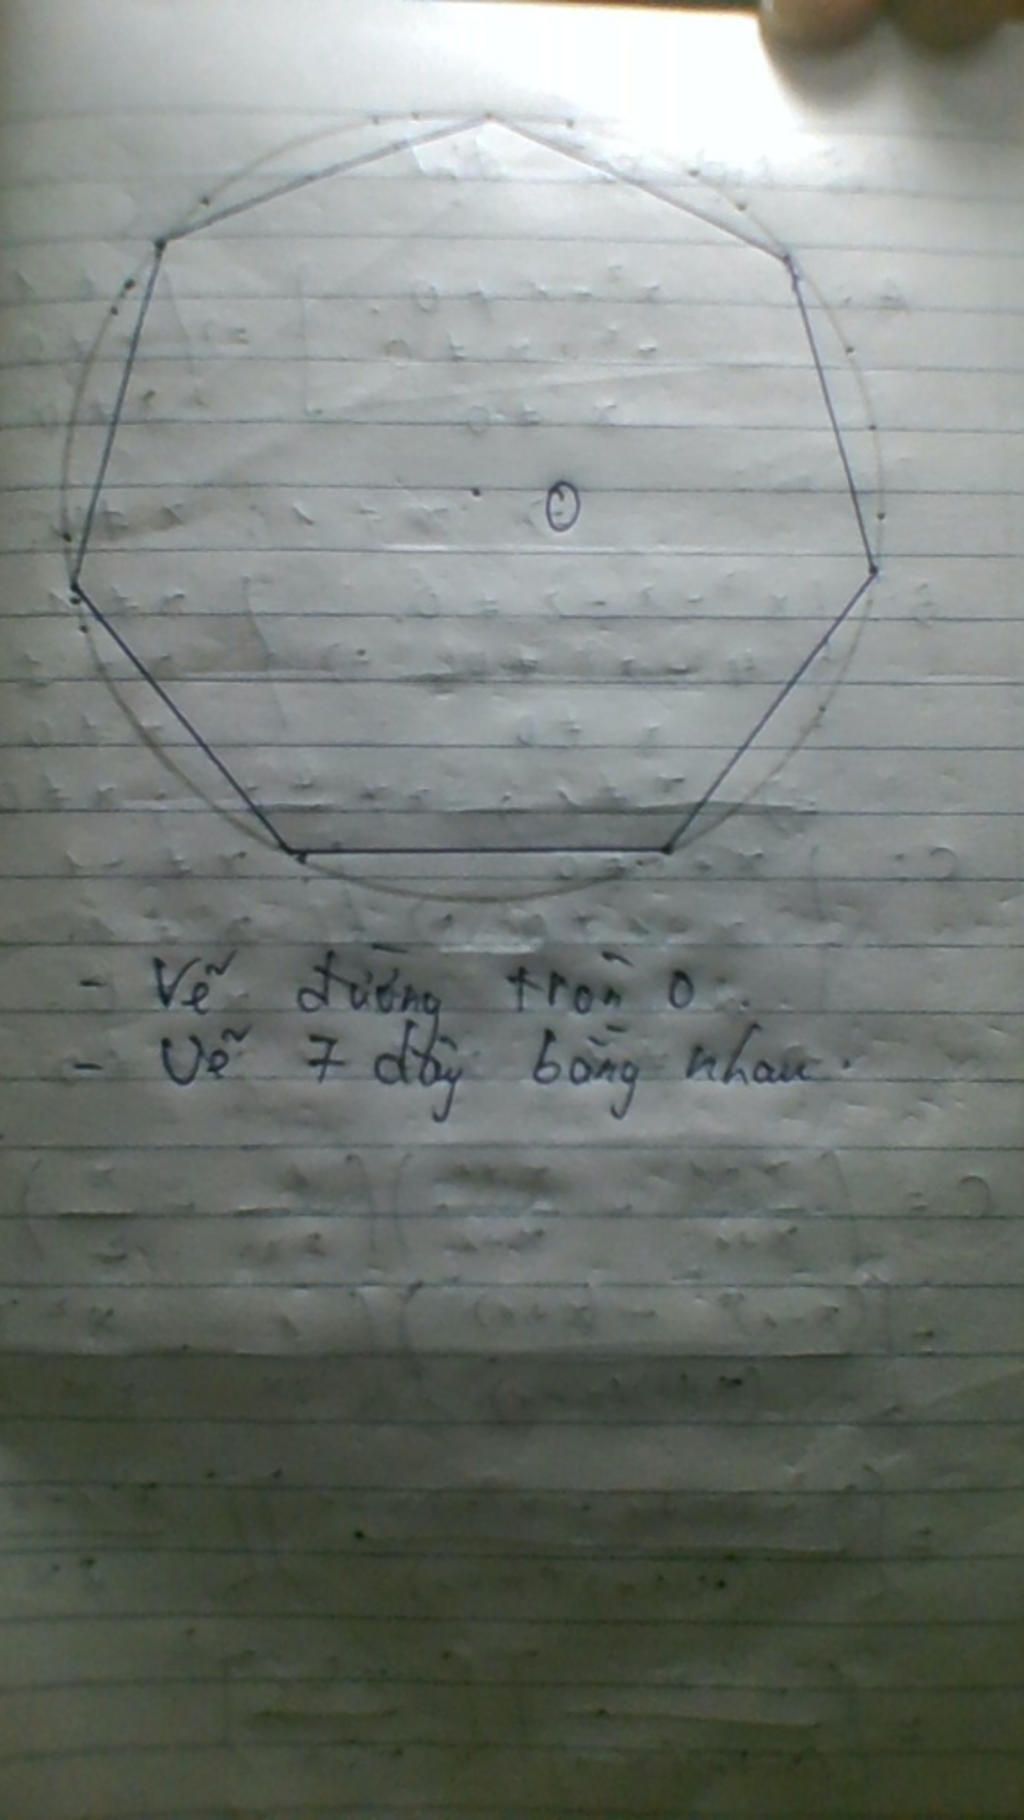 O
- Vẽ đường tròn O.
- Vẽ 7 dây bằng nhau.